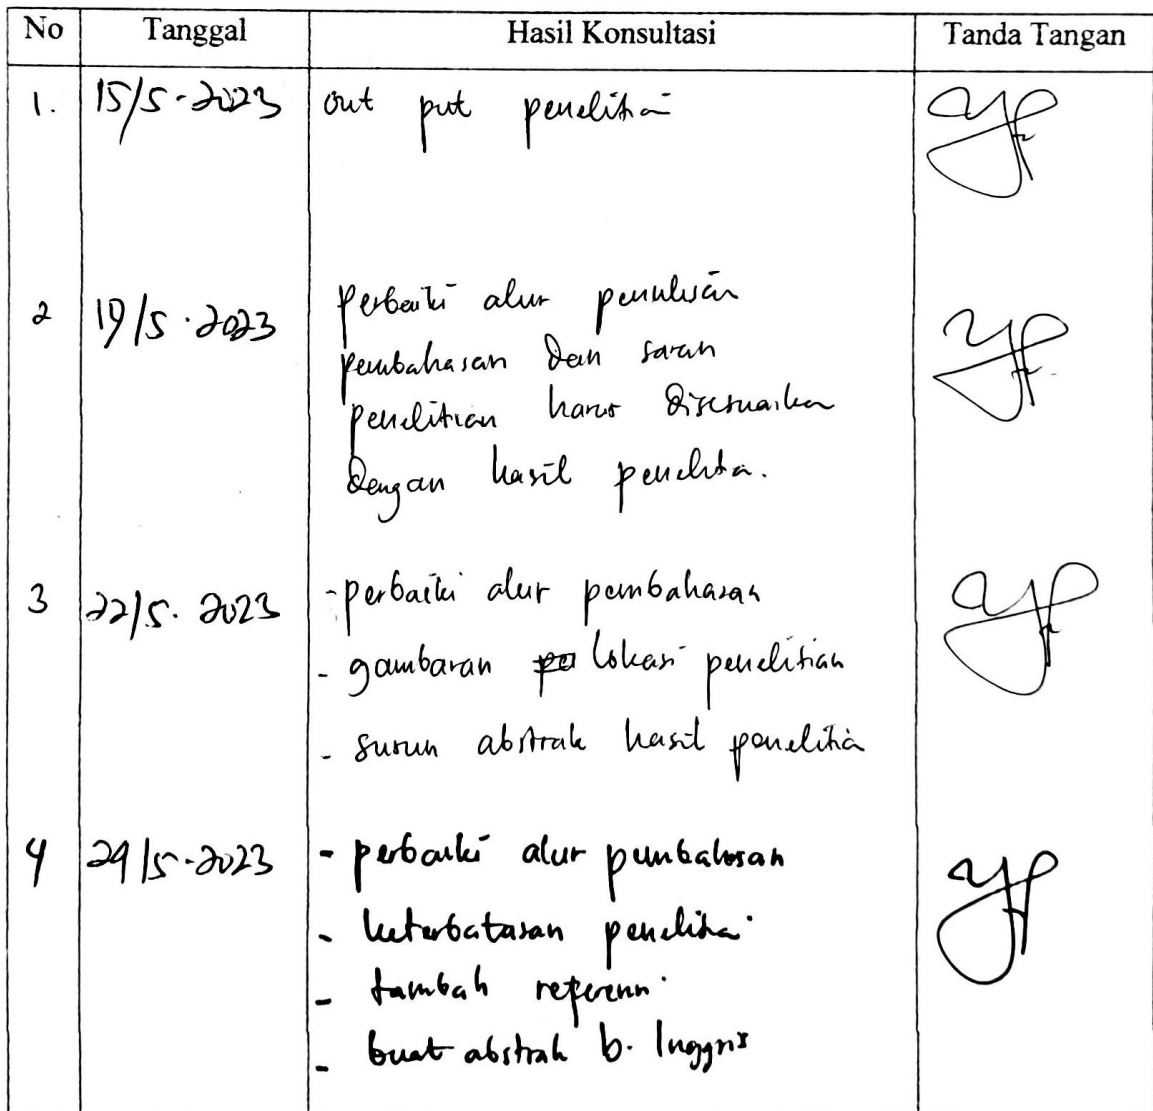 No Tanggal Hasil Konsultasi Tanda Tangan
1. 15/5-2023 out put penelitian
2 19/5.2023 perbaiki alur penulisan
pembahasan dan saran
penelitian harus disesuaikan
dengan hasil penelitian.
3 22/5.2023 -perbaiki alur pembahasan
- gambaran lokasi penelitian
- susun abstrak hasil penelitian
4 29/5-2023 - perbaiki alur pembahasan
- keterbatasan penelitian
- tambah referensi
- buat abstrak b. Inggris